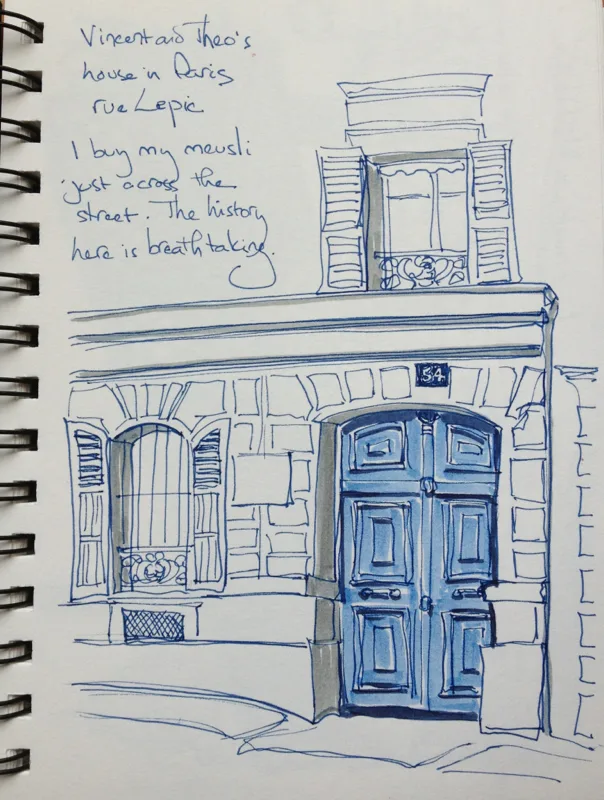 Vincent and Theo's
house in Paris
rue Lepic
I buy my meusli
just across the
street. The history
here is breathtaking.
54